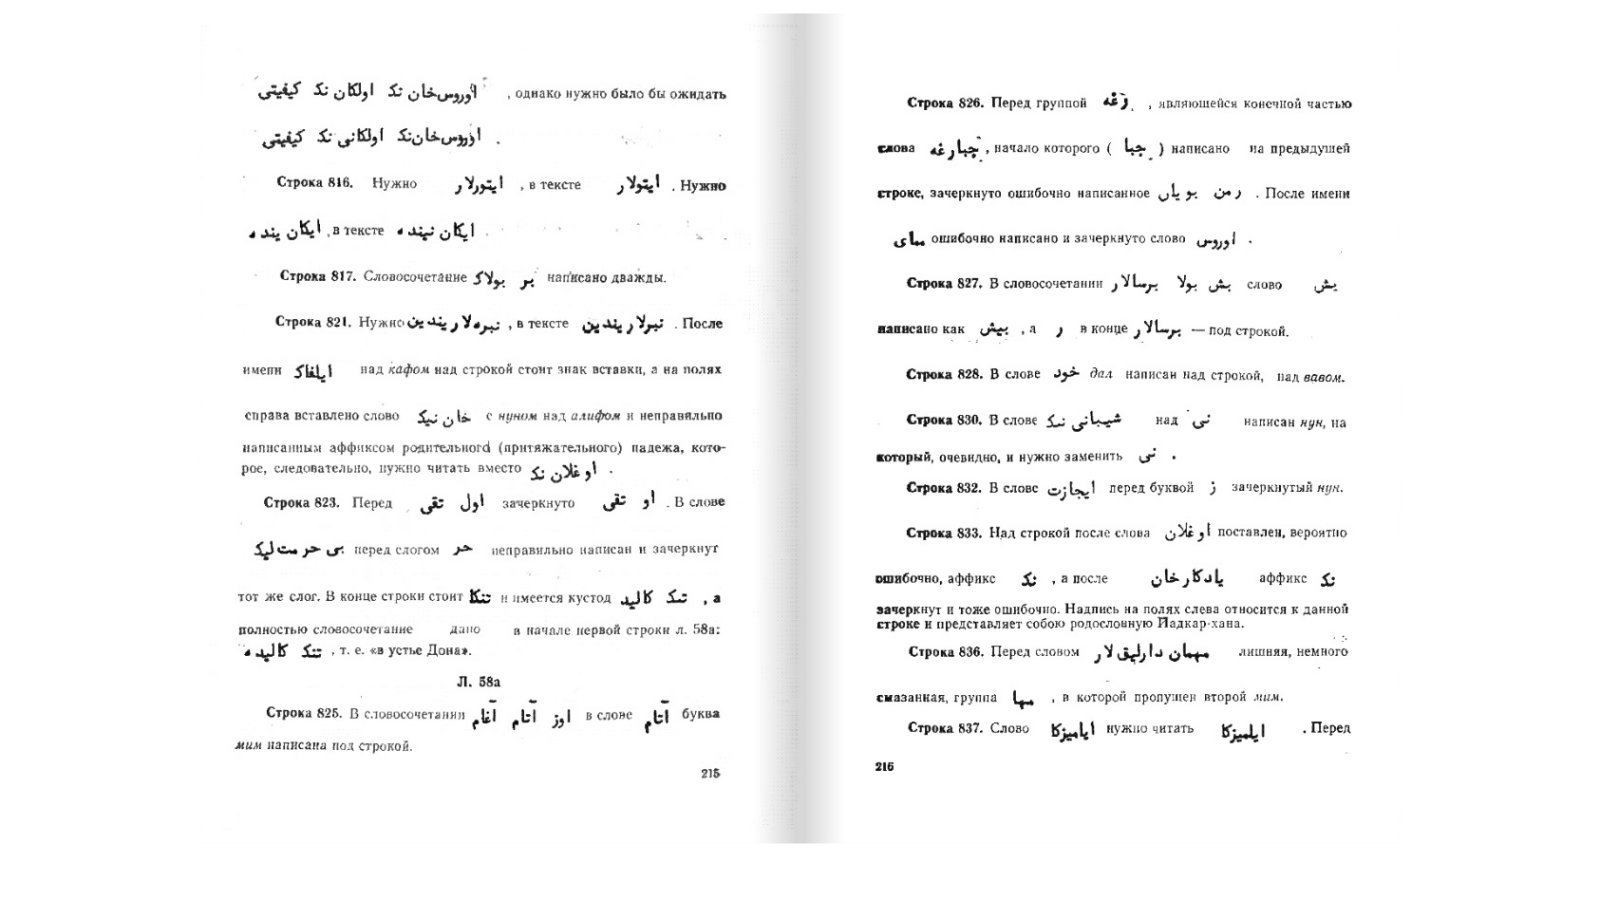 اوروس‌خان نك اولكان نك كيفيتى , однако нужно было бы ожидать
اوروس‌خان‌نك اولكانى نك كيفيتى .
Строка 816. Нужно ايتورلار , в тексте ايتولار . Нужно
ايكان ينده , в тексте ايكان نينده .
Строка 817. Словосочетание بر بولاك написано дважды.
Строка 821. Нужно نبره‌لاريندين , в тексте نبرلاريندين . После
имени ايلفاك над кафом над строкой стоит знак вставки, а на полях
справа вставлено слово خان نيك с нуном над алифом и неправильно
написанным аффиксом родительного (притяжательного) падежа, кото-
рое, следовательно, нужно читать вместо اوغلان نك .
Строка 823. Перед اول تقى зачеркнуто او تقى . В слове
بى حرمت‌ليك перед слогом حر неправильно написан и зачеркнут
тот же слог. В конце строки стоит تنكا и имеется кустод تنك كاليد , а
полностью словосочетание дано в начале первой строки л. 58а:
تنك كاليده , т. е. «в устье Дона».
Л. 58а
Строка 825. В словосочетании اوز آتام آغام в слове آتام буква
мим написана под строкой.
215
Строка 826. Перед группой رغه , являющейся конечной частью
слова جبارغه , начало которого ( جبا ) написано на предыдущей
строке, зачеркнуто ошибочно написанное رمن بويان . После имени
ошибочно написано и зачеркнуто слово اوروس .
Строка 827. В словосочетании بش بولا برسالار слово بش
написано как بيش , а ر в конце برسالار — под строкой.
Строка 828. В слове خود дал написан над строкой, над вавом.
Строка 830. В слове شيبانى نك над نى написан нун, на
который, очевидно, и нужно заменить نى .
Строка 832. В слове ايجازت перед буквой ز зачеркнутый нун.
Строка 833. Над строкой после слова اوغلان поставлен, вероятно
ошибочно, аффикс نك , а после يادكارخان аффикс نك
зачеркнут и тоже ошибочно. Надпись на полях слева относится к данной
строке и представляет собою родословную Йадкар-хана.
Строка 836. Перед словом مهمان دارليق لار лишняя, немного
смазанная, группа مها , в которой пропущен второй мим.
Строка 837. Слово اياميزكا нужно читать ايلميزكا . Перед
216